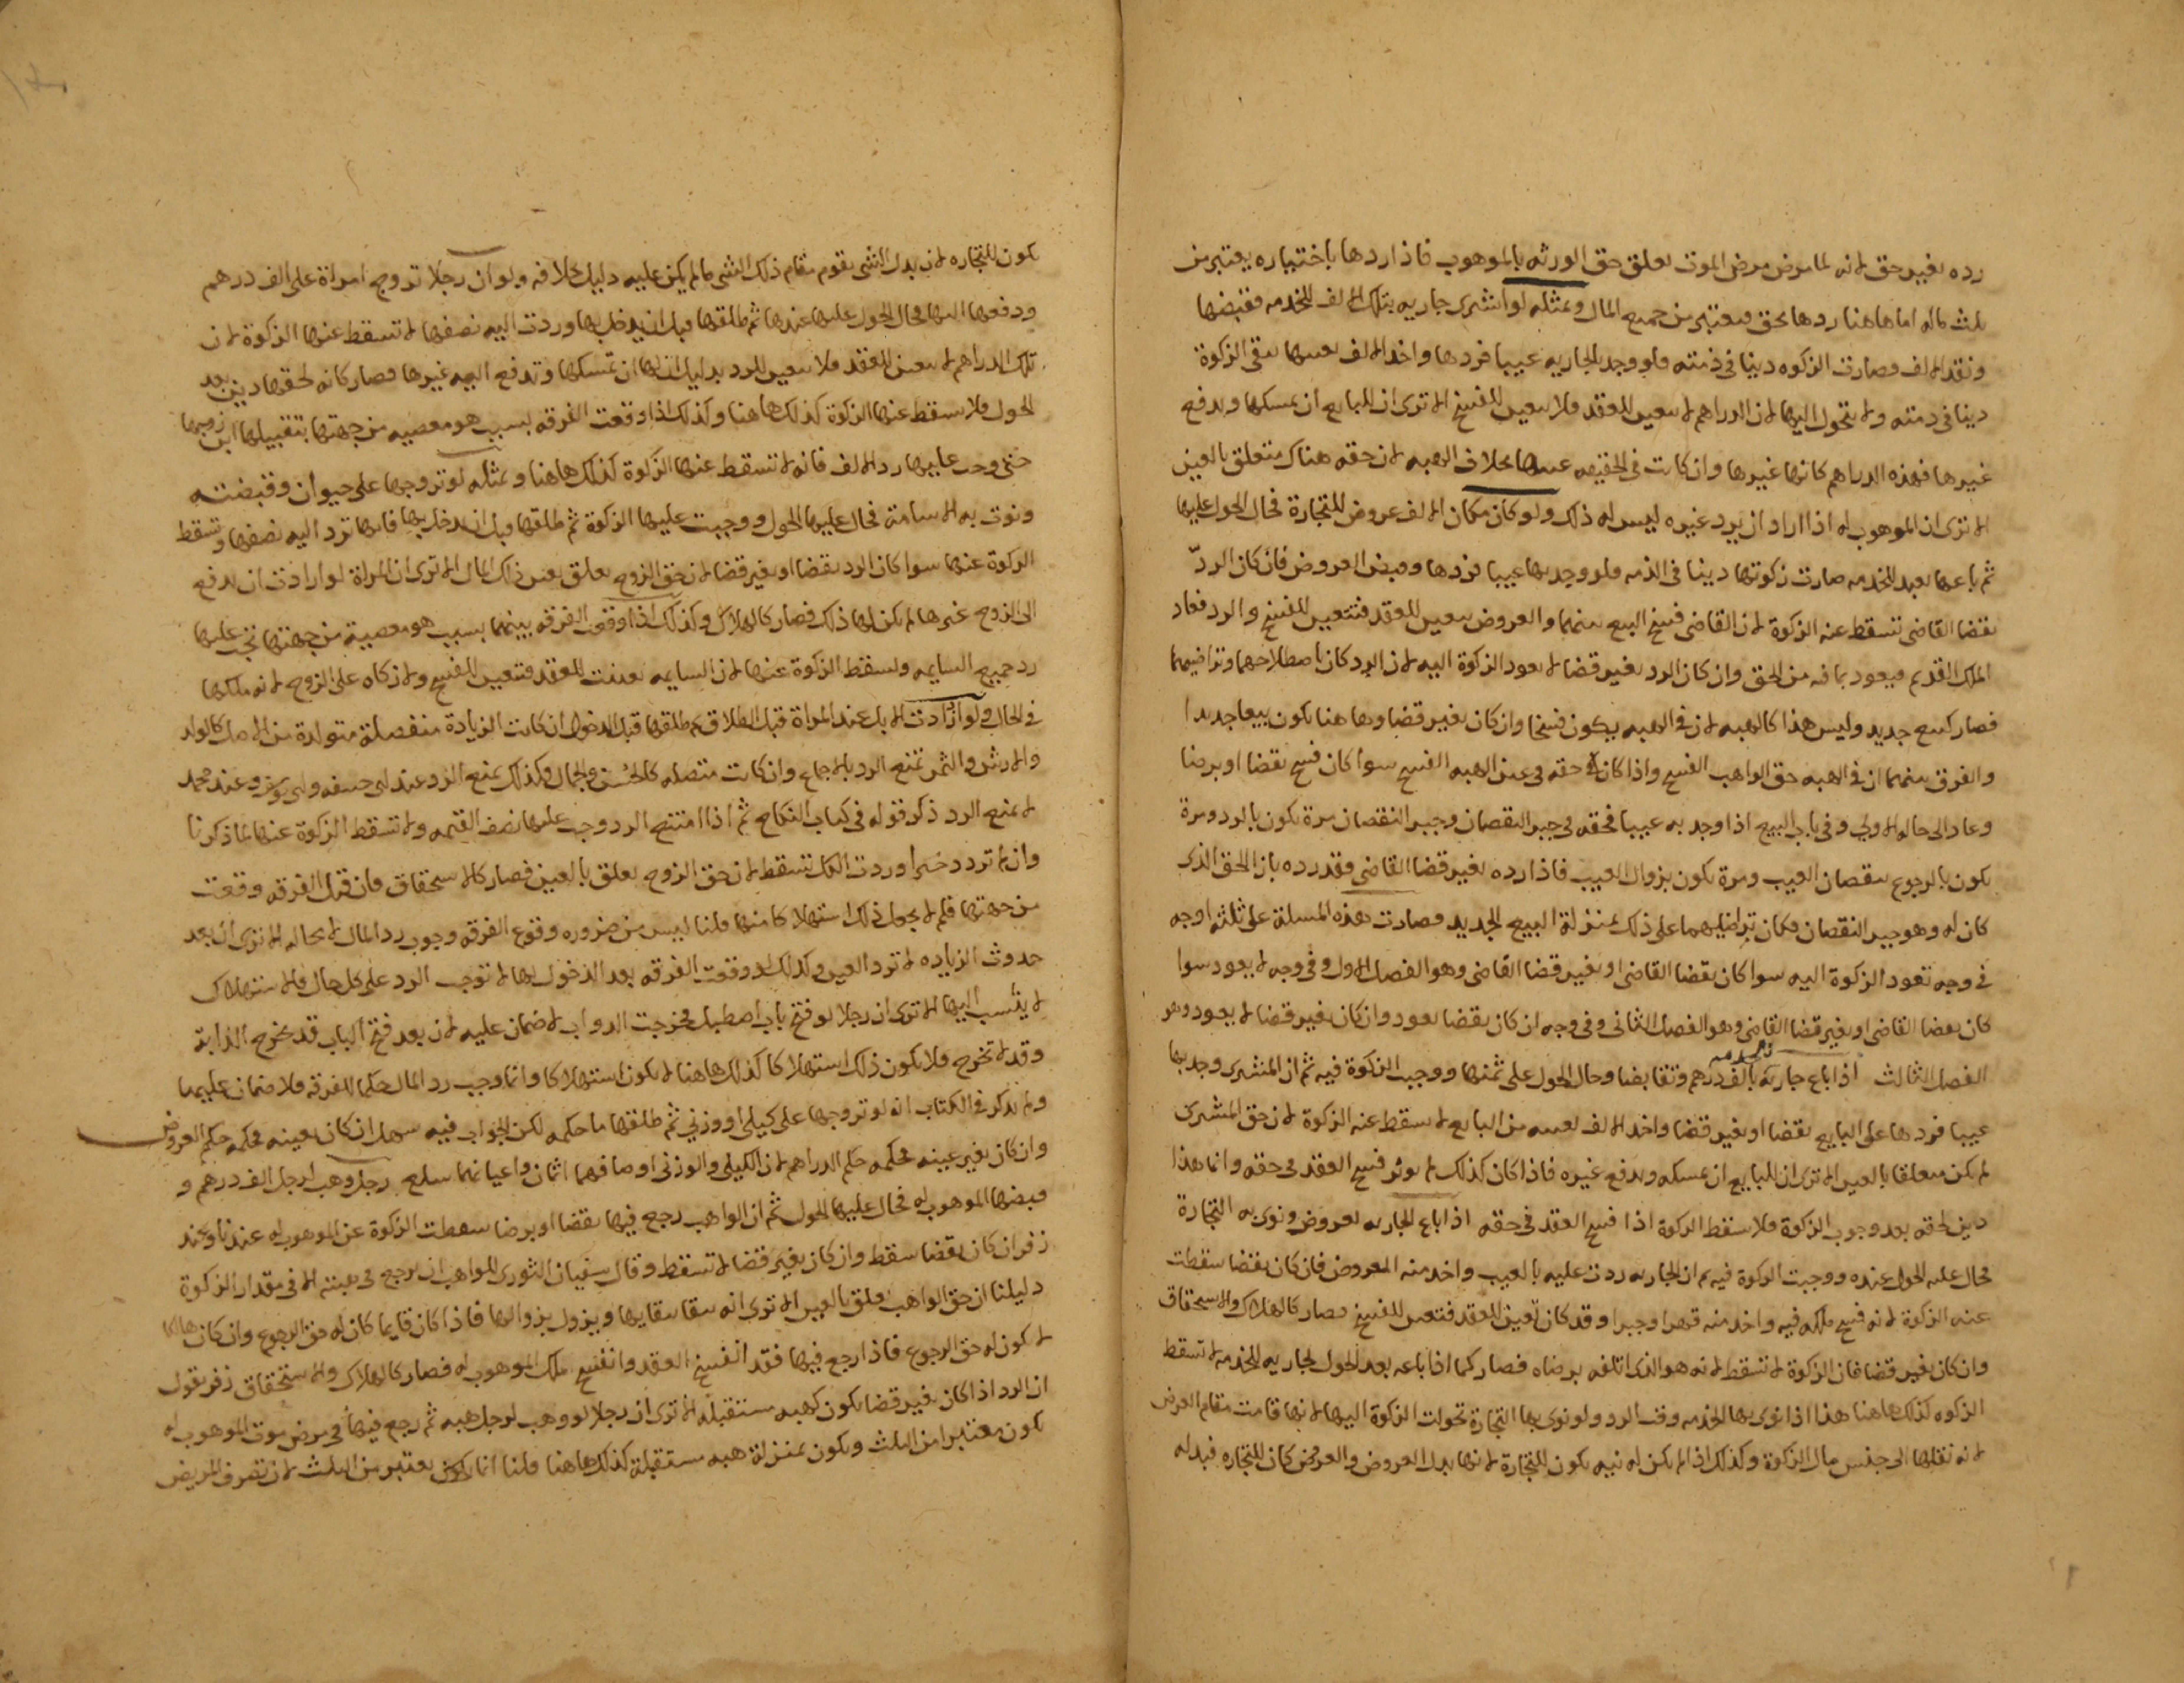 رده بغير حق لانه لما مرض مرض الموت تعلق حق الورثه بالموهوب فاذا ردها باختياره يعتبر من
ثلث ماله اما هاهنا ردها بحق فيعتبر من جميع المال وبمثله لو اشترى جاريه بتلك الالف للخدمه فقبضها
ونقد الالف فصارت الزكوه دينا في ذمته ولو وجد بالجاريه عيبا فردها واخذ الالف بعينها تبقى الزكوة
دينا في ذمته ولا يتحول اليها لان الدراهم لا تتعين للعقد فلا تتعين للفسخ الا ترى ان للبايع ان يمسكها ويدفع
غيرها فهذه الدراهم كانها غيرها وان كانت في الحقيقه عينها بخلاف الهبه لان حقه هناك متعلق بالعين
الا ترى ان الموهوب له اذا اراد ان يرد غيره ليس له ذلك ولو كان مكان الالف عروض للتجارة فحال الحول عليها
ثم باعها بعبد للخدمه صارت زكوتها دينا في الذمه فلو وجد بها عيبا فردها وقبض العروض فان كان الردّ
بقضا القاضى تسقط عنه الزكوة لان القاضى فسخ البيع بينهما والعروض تتعين للعقد فتتعين للفسخ والرد فعاد
الملك القديم فيعود بما فيه من الحق وان كان الرد بغير قضا لا يعود الزكوة اليه لان الرد كان باصطلاحهما وتراضيهما
فصار كبيع جديد وليس هذا كالهبه لان في الهبه يكون فسخا وان كان بغير قضا وهاهنا يكون بيعا جديدا
والفرق بينهما ان في الهبه حق الواهب الفسخ واذا كان له حقه في عين الهبه الفسخ سوا كان فسخ بقضا او برضا
وعاد الى حاله الاولي وفي باب البيع اذا وجد به عيبا فحقه في جبر النقصان وجبر النقصان مرة يكون بالرد ومرة
يكون بالرجوع بنقصان العيب ومرة يكون بزوال العيب فاذا رده بغير قضا القاضى فقد رده بازا الحق الذى
كان له وهو جبر النقصان فكان بتراضيهما على ذلك بمنزلة البيع الجديد فصارت هذه المسلة على ثلثة اوجه
في وجه تعود الزكوة اليه سوا كان بقضا القاضى او بغير قضا القاضى وهو الفصل الاول وفي وجه لا يعود سوا
كان بقضا القاضى او بغير قضا القاضى وهو الفصل الثانى وفي وجه ان كان بقضا يعود وان كان بغير قضا لا يعود وهو
الفصل الثالث اذا باع جاريه بالف درهم وتقابضا وحال الحول على ثمنها ووجبت الزكوة فيه ثم ان المشترى وجد بها
عيبا فردها على البايع بقضا او بغير قضا واخذ الالف بعينه من البايع لا يسقط عنه الزكوة لان حق المشترى
لم يكن متعلقا بالعين الا ترى ان للبايع ان يمسكه ويدفع غيره فاذا كان كذلك لم يوثر فسخ العقد في حقه وانما هذا
دين لحقه بعد وجوب الزكوة فلا يسقط الزكوة اذا فسخ العقد في حقه اذا باع الجاريه بعروض ونوى به التجارة
فحال عليه الحول عنده ووجبت الزكوة فيه ثم ان الجاريه ردت عليه بالعيب واخذ منه العروض فان كان بقضا سقطت
عنه الزكوة لانه فسخ ملكه فيه واخذ منه قهرا وجبرا وقد كان تعين للعقد فتعين للفسخ فصار كالهلاك والاستحقاق
وان كان بغير قضا فان الزكوة لا تسقط لانه هو الذى اتلفه برضاه فصار كما اذا باعه بعد الحول لجاريه للخدمه لا تسقط
الزكوه كذلك هاهنا هذا اذا نوى بها الخدمه وقت الرد ولو نوى بها التجارة تحولت الزكوة اليها لانها قامت مقام العرض
لانه نقلها الى جنس مال الزكوة وكذلك اذا لم يكن له نيه يكون للتجارة لانها بدل العروض والعرض كان للتجاره فبدله
يكون للتجاره لان بدل الشى يقوم مقام ذلك الشى ما لم يكن عليه دليل بخلافه ولو ان رجلا تزوج امراة على الف درهم
ودفعها اليها فحال الحول عليها عندها ثم طلقها قبل ان يدخل بها وردت اليه نصفها لا تسقط عنها الزكوة لان
تلك الدراهم لا تتعين للعقد فلا تتعين للرد بدليل ان لها ان تمسكها وتدفع اليه غيرها فصار كانه لحقها دين بعد
الحول فلا يسقط عنها الزكوة كذلك هاهنا وكذلك اذا وقعت الفرقه بسبب هو معصيه من جهتها بتقبيلها ابن زوجها
حتى وجب عليها رد الالف فانه لا تسقط عنها الزكوة كذلك هاهنا وبمثله لو تزوجها على حيوان وقبضته
ونوت به الاسامة فحال عليها الحول ووجبت عليها الزكوة ثم طلقها قبل ان يدخل بها فانها ترد اليه نصفها وتسقط
الزكوة عنها سوا كان الرد بقضا او بغير قضا لان حق الزوج تعلق بعين ذلك المال الا ترى ان المراة لو ارادت ان يدفع
الى الزوج غيرها لم يكن لها ذلك فصار كالهلاك وكذلك اذا وقعت الفرقه بينهما بسبب هو معصية من جهتها تجب عليها
رد جميع السايمه وتسقط الزكوة عنها لان السايمه تعينت للعقد فتتعين للفسخ ولا زكاه على الزوج لانه ملكها
في الحال ولو ازدادت الابل عند المراة قبل الطلاق ثم طلقها قبل الدخول ان كانت الزيادة منفصلة متولدة من الاصل كالولد
والارش والثمر تمنع الرد بالاجماع وان كانت متصله كالحسن والجمال فكذلك يمنع الرد عند ابى حنيفه وابى يوسف وعند محمد
لا يمنع الرد ذكر قوله في كتاب النكاح ثم اذا امتنع الرد وجب عليها نصف القيمه ولا تسقط الزكوة عنها لما ذكرنا
وان لم تزدد خيرا وردت الكل تسقط لان حق الزوج تعلق بالعين فصار كالاستحقاق فان قيل الفرقه وقعت
من جهتها فلم لا يجعل ذلك استهلاكا منها قلنا ليس من ضروره وقوع الفرقه وجوب رد المال لا محاله الا ترى ان بعد
حدوث الزياده لا ترد العين وكذلك لو وقعت الفرقه بعد الدخول بها لا توجب الرد على كل حال فالاستهلاك
لا ينسب اليها الا ترى ان رجلا لو فتح باب اصطبل فخرجت الدواب لا ضمان عليه لان بعد فتح الباب قد يخرج الدابة
وقد لا تخرج فلا يكون ذلك استهلاكا كذلك هاهنا لا يكون استهلاكا وانما وجب رد المال حكما للفرقه فلا ضمان عليها
ولم يذكر في الكتاب انه لو تزوجها على كيلى او وزني ثم طلقها ما حكمه لكن الجواب فيه سهل ان كان بعينه فحكمه حكم العروض
وان كان بغير عينه فحكمه حكم الدراهم لان الكيلى والوزنى اوصافهما اثمان واعيانهما سلع رجل وهب لرجل الف درهم و
قبضها الموهوب له فحال عليها الحول ثم ان الواهب رجع فيها بقضا او برضا سقطت الزكوة عن الموهوب له عندنا وعند
زفر ان كان بقضا سقط وان كان بغير قضا لا تسقط وقال سفيان الثورى للواهب ان يرجع في هبته الا في مقدار الزكوة
دليلنا ان حق الواهب تعلق بالعين الا ترى انه يبقا ببقايها ويزول بزوالها فاذا كان قايما كان له حق الرجوع وان كان هالكا
لا يكون له حق الرجوع فاذا رجع فيها فقد انفسخ العقد وانفسخ ملك الموهوب له فصار كالهلاك والاستحقاق زفر يقول
ان الرد اذا كان بغير قضا يكون كهبه مستقبله الا ترى ان رجلا لو وهب لرجل هبه ثم رجع فيها في مرض موت الموهوب له
يكون معتبرا من الثلث ويكون بمنزلة هبه مستقبلة كذلك هاهنا قلنا انما يعتبر من الثلث لان تصرف المريض